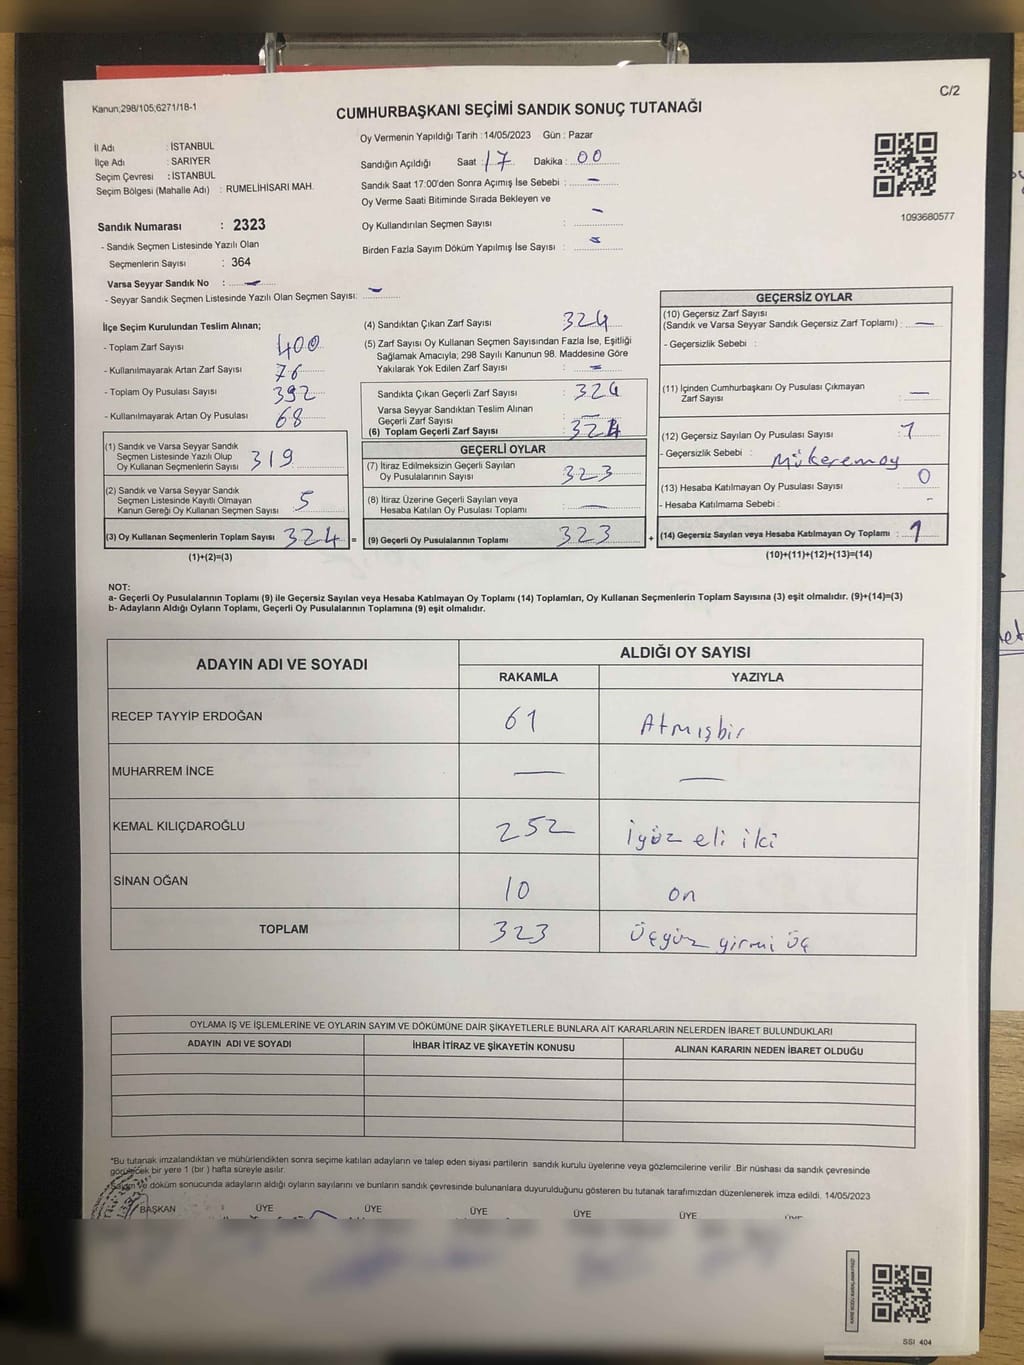 C/2
Kanun;298/105;6271/18-1
CUMHURBAŞKANI SEÇİMİ SANDIK SONUÇ TUTANAĞI
İl Adı : İSTANBUL
İlçe Adı : SARIYER
Seçim Çevresi : İSTANBUL
Seçim Bölgesi (Mahalle Adı) : RUMELİHİSARI MAH.
Oy Vermenin Yapıldığı Tarih : 14/05/2023 Gün : Pazar
Sandığın Açıldığı Saat : 17 Dakika : 00
Sandık Saat 17:00'den Sonra Açımış İse Sebebi : –
Oy Verme Saati Bitiminde Sırada Bekleyen ve
Oy Kullandırılan Seçmen Sayısı : –
Birden Fazla Sayım Döküm Yapılmış İse Sayısı :
1093680577
Sandık Numarası : 2323
- Sandık Seçmen Listesinde Yazılı Olan
Seçmenlerin Sayısı : 364
Varsa Seyyar Sandık No : –
- Seyyar Sandık Seçmen Listesinde Yazılı Olan Seçmen Sayısı: –
İlçe Seçim Kurulundan Teslim Alınan;
- Toplam Zarf Sayısı 400
- Kullanılmayarak Artan Zarf Sayısı 76
- Toplam Oy Pusulası Sayısı 392
- Kullanılmayarak Artan Oy Pusulası 68
(1) Sandık ve Varsa Seyyar Sandık
Seçmen Listesinde Yazılı Olup
Oy Kullanan Seçmenlerin Sayısı 319
(2) Sandık ve Varsa Seyyar Sandık
Seçmen Listesinde Kayıtlı Olmayan
Kanun Gereği Oy Kullanan Seçmen Sayısı 5
(3) Oy Kullanan Seçmenlerin Toplam Sayısı 324 =
(1)+(2)=(3)
(4) Sandıktan Çıkan Zarf Sayısı 324
(5) Zarf Sayısı Oy Kullanan Seçmen Sayısından Fazla İse, Eşitliği
Sağlamak Amacıyla; 298 Sayılı Kanunun 98. Maddesine Göre
Yakılarak Yok Edilen Zarf Sayısı : –
Sandıkta Çıkan Geçerli Zarf Sayısı : 324
Varsa Seyyar Sandıktan Teslim Alınan
Geçerli Zarf Sayısı : –
(6) Toplam Geçerli Zarf Sayısı : 324
GEÇERLİ OYLAR
(7) İtiraz Edilmeksizin Geçerli Sayılan
Oy Pusulalarının Sayısı : 323
(8) İtiraz Üzerine Geçerli Sayılan veya
Hesaba Katılan Oy Pusulası Toplamı : –
(9) Geçerli Oy Pusulalarının Toplamı : 323 +
GEÇERSİZ OYLAR
(10) Geçersiz Zarf Sayısı
(Sandık ve Varsa Seyyar Sandık Geçersiz Zarf Toplamı) : –
- Geçersizlik Sebebi :
(11) İçinden Cumhurbaşkanı Oy Pusulası Çıkmayan
Zarf Sayısı : –
(12) Geçersiz Sayılan Oy Pusulası Sayısı : 1
- Geçersizlik Sebebi : Mükeremoy
(13) Hesaba Katılmayan Oy Pusulası Sayısı : 0
- Hesaba Katılmama Sebebi : -
(14) Geçersiz Sayılan veya Hesaba Katılmayan Oy Toplamı : 1
(10)+(11)+(12)+(13)=(14)
NOT:
a- Geçerli Oy Pusulalarının Toplamı (9) ile Geçersiz Sayılan veya Hesaba Katılmayan Oy Toplamı (14) Toplamları, Oy Kullanan Seçmenlerin Toplam Sayısına (3) eşit olmalıdır. (9)+(14)=(3)
b- Adayların Aldığı Oyların Toplamı, Geçerli Oy Pusulalarının Toplamına (9) eşit olmalıdır.
ADAYIN ADI VE SOYADI ALDIĞI OY SAYISI
RAKAMLA YAZIYLA
RECEP TAYYİP ERDOĞAN 61 Atmışbir
MUHARREM İNCE — —
KEMAL KILIÇDAROĞLU 252 İyüz eli iki
SİNAN OĞAN 10 on
TOPLAM 323 Üçyüz yirmi üç
OYLAMA İŞ VE İŞLEMLERİNE VE OYLARIN SAYIM VE DÖKÜMÜNE DAİR ŞİKAYETLERLE BUNLARA AİT KARARLARIN NELERDEN İBARET BULUNDUKLARI
ADAYIN ADI VE SOYADI İHBAR İTİRAZ VE ŞİKAYETİN KONUSU ALINAN KARARIN NEDEN İBARET OLDUĞU
*Bu tutanak imzalandıktan ve mühürlendikten sonra seçime katılan adayların ve talep eden siyasi partilerin sandık kurulu üyelerine veya gözlemcilerine verilir .Bir nüshası da sandık çevresinde
görülecek bir yere 1 (bir ) hafta süreyle asılır.
Sayım ve döküm sonucunda adayların aldığı oyların sayılarını ve bunların sandık çevresinde bulunanlara duyurulduğunu gösteren bu tutanak tarafımızdan düzenlenerek imza edildi. 14/05/2023
BAŞKAN ÜYE ÜYE ÜYE ÜYE ÜYE ÜYE
SSI 404